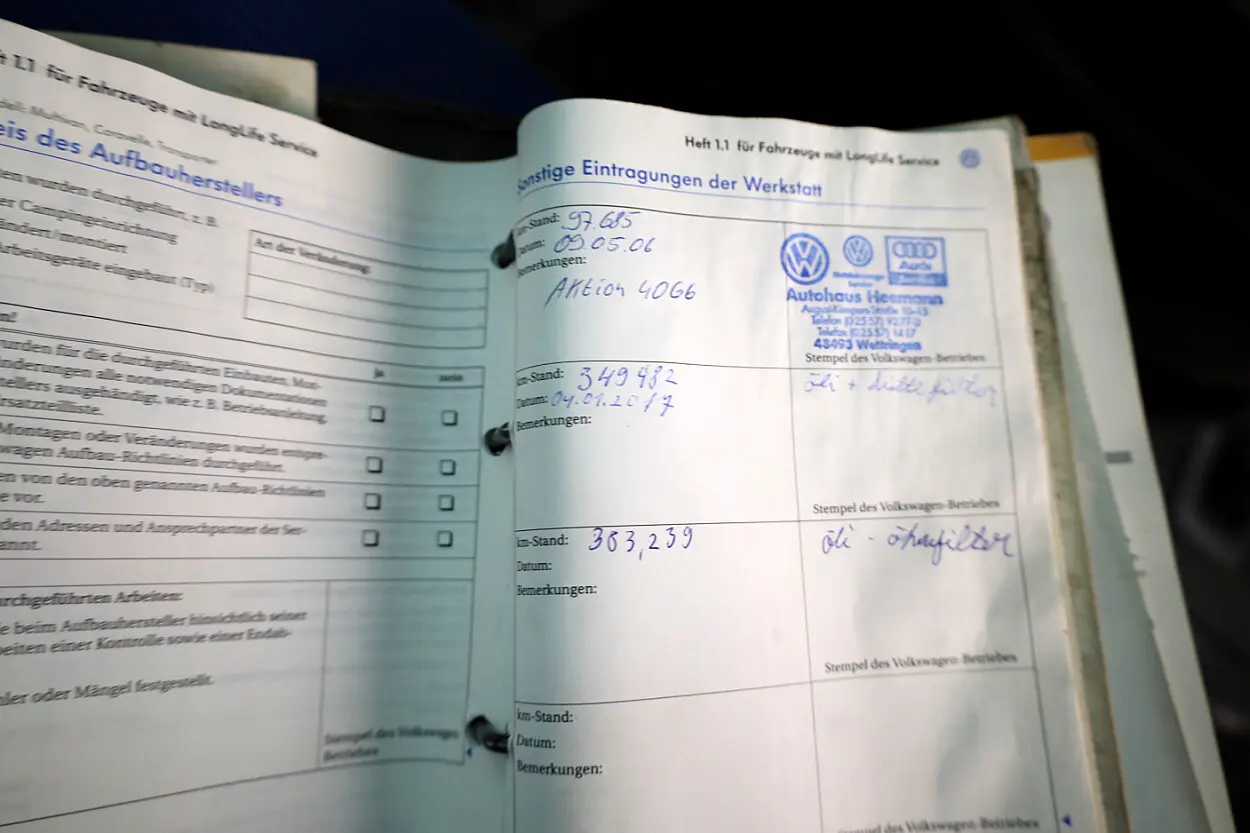 1.1 für Fahrzeuge mit LongLife Service
Multivan, Caravelle, Transporter
eis des Aufbauherstellers
ten wurden durchgeführt, z. B.
er Campingeinrichtung
ändert/montiert
Arbeitsgeräte eingebaut (Typ)
Art der Veränderung
en!
ja
nein
wurden für die durchgeführten Einbauten, Mon-
änderungen alle notwendigen Dokumentationen
stellers ausgehändigt, wie z. B. Betriebsanleitung,
rsatzteilliste.
Montagen oder Veränderungen wurden entspre-
swagen Aufbau-Richtlinien durchgeführt.
en von den oben genannten Aufbau-Richtlinien
e vor.
den Adressen und Ansprechpartner der Ser-
annt.
urchgeführten Arbeiten:
e beim Aufbauhersteller hinsichtlich seiner
beiten einer Kontrolle sowie einer Endab-
hler oder Mängel festgestellt.
Stempel des Volkswagen-
Betriebes
Heft 1.1 für Fahrzeuge mit LongLife Service
Sonstige Eintragungen der Werkstatt
km-Stand: 97.685
Datum: 09.05.06
Bemerkungen:
Aktion 40G6
Audi
Service
Autohaus Hesmann
August-Kümpers-Straße 10-13
Telefon (0 25 57) 92 77-0
Telefax (0 25 57) 14 17
48493 Wettringen
Stempel des Volkswagen-Betriebes
km-Stand: 349482
Datum: 04.01.2017
Bemerkungen:
öli +
Stempel des Volkswagen-Betriebes
km-Stand: 383,239
Datum:
Bemerkungen:
öli -
Stempel des Volkswagen-Betriebes
km-Stand:
Datum:
Bemerkungen:
Stempel des Volkswagen-Betriebes